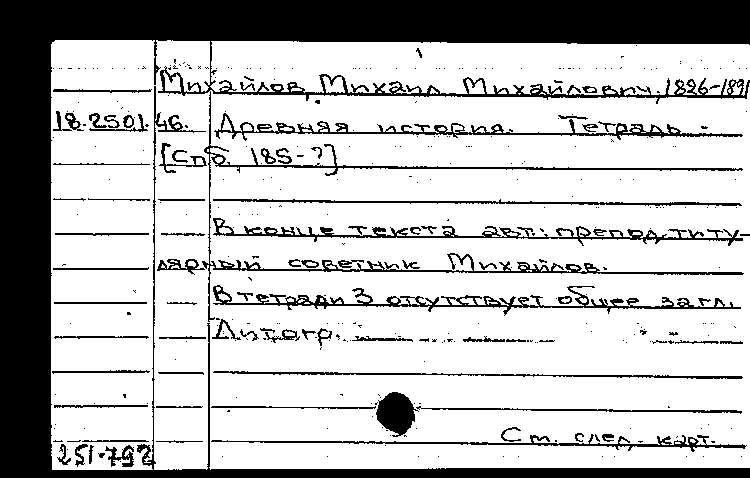 Михайлов, Михаил Михайлович, 1826-1891
18.250.1.46. Древняя история. Тетрадь -
[Спб. 185-?]
В конце текста авт.: препод. титу-
лярный советник Михайлов.
В тетради 3 отсутствует общее загл.
Литогр.
См. след. карт.
251-792